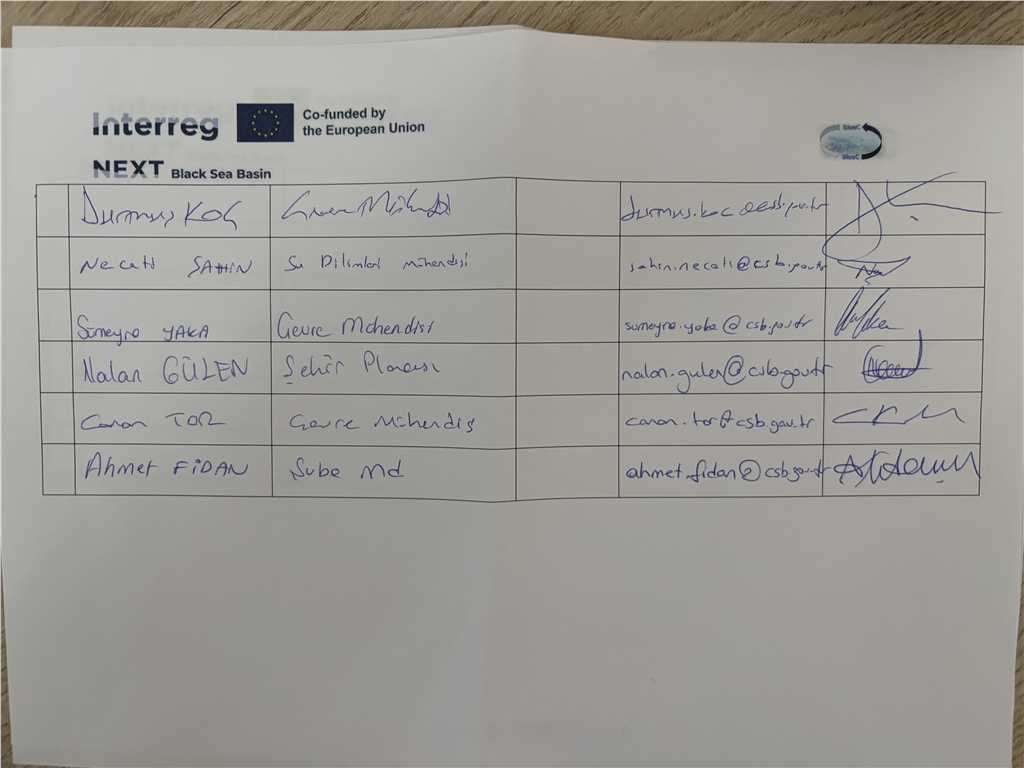 Interreg Co-funded by
the European Union
NEXT Black Sea Basin
Durmuş KOÇ Çevre Mühendisi durmus.koc@csb.gov.tr
Necati SAHİN Su Bilimleri Mühendisi sahin.necati@csb.gov.tr
Sümeyra YAKA Çevre Mühendisi sumeyra.yaka@csb.gov.tr
Nalan GÜLEN Şehir Plancısı nalan.gulen@csb.gov.tr
Canan TOR Çevre Mühendisi canan.tor@csb.gov.tr
Ahmet FİDAN Şube Md ahmet.fidan@csb.gov.tr